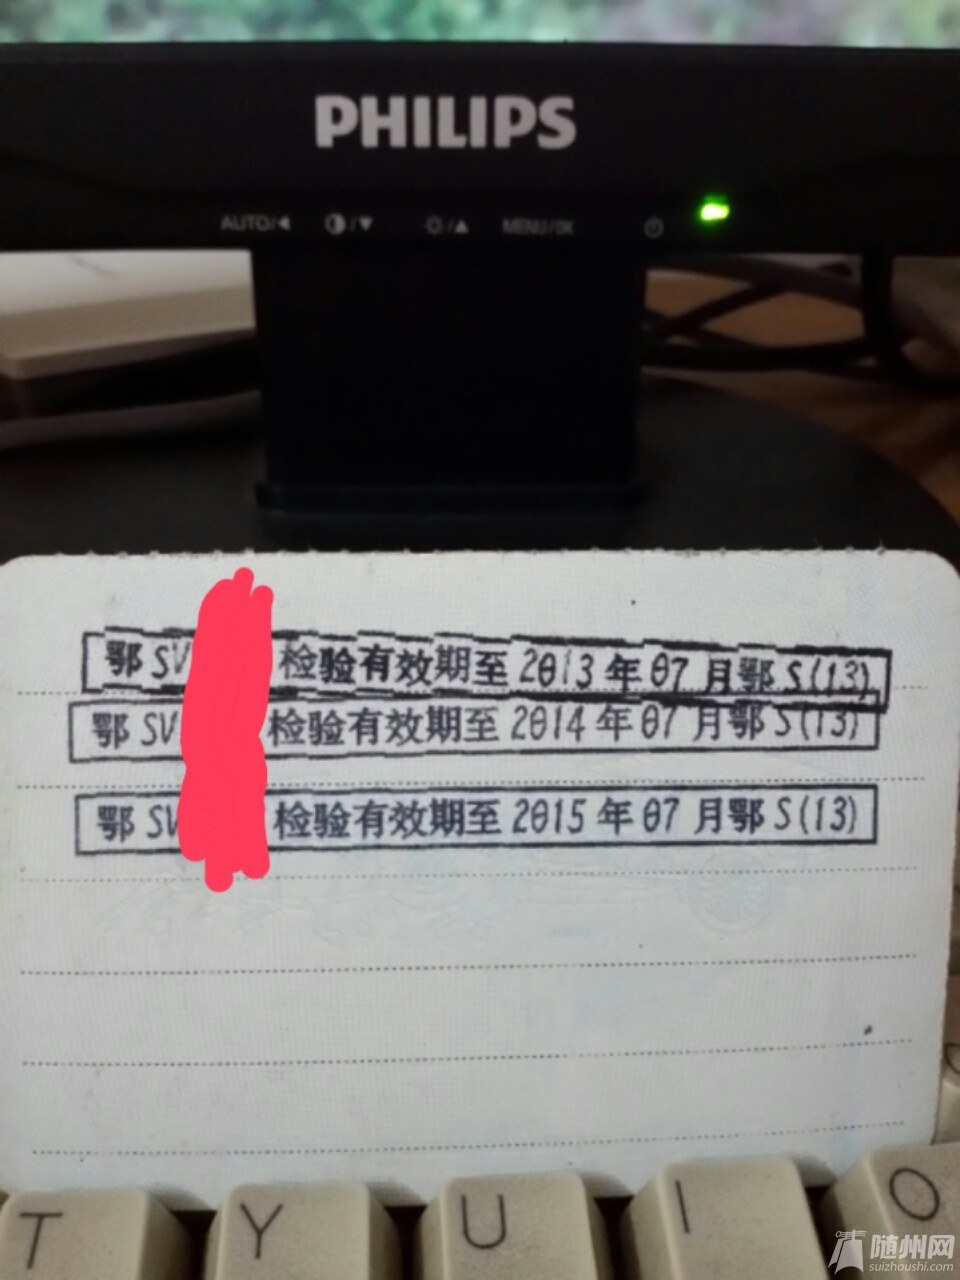 PHILIPS
AUTO/◀ /▼ /▲ MENU/OK
鄂SV 检验有效期至2013年07月鄂S(13)
鄂SV 检验有效期至2014年07月鄂S(13)
鄂SV 检验有效期至2015年07月鄂S(13)
T Y U I O
随州网
suizhoushi.com